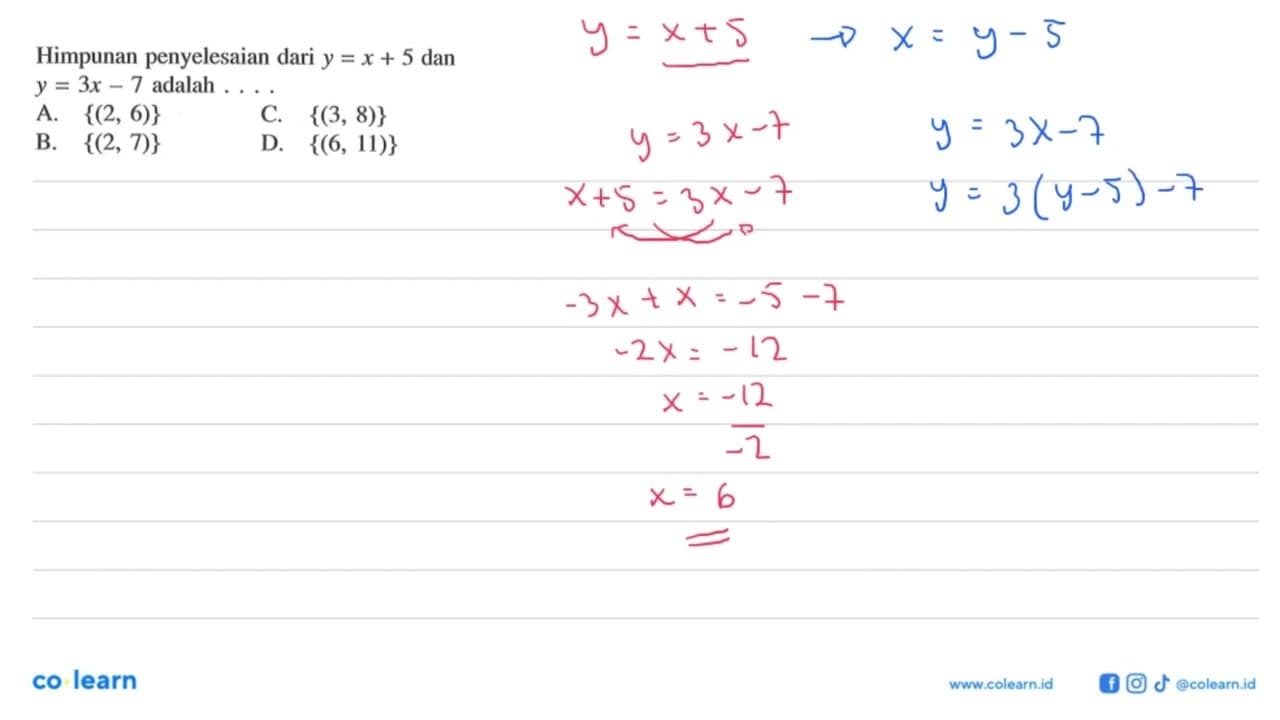 Himpunan penyelesaian dari y = x + 5 dan
y = 3x – 7 adalah . . . .
A. {(2, 6)} C. {(3, 8)}
B. {(2, 7)} D. {(6, 11)}
y = x + 5 → x = y - 5
y = 3x - 7
x + 5 = 3x - 7
-3x + x = -5 - 7
-2x = -12
x = -12
-2
x = 6
y = 3x - 7
y = 3(y - 5) - 7
co learn
www.colearn.id
@colearn.id